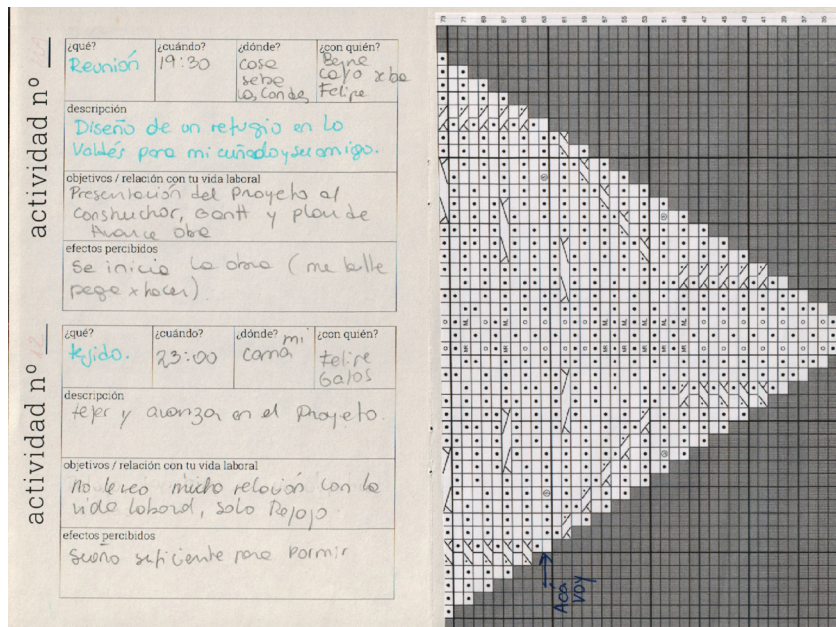 actividad nº
¿qué?
Reunión
¿cuándo?
19:30
¿dónde?
casa
seba
Las Condes
¿con quién?
Felipe
descripción
Diseño de un refugio en Lo
Valdés para mi cuñado y su amigo.
objetivos / relación con tu vida laboral
Presentación del Proyecto al
constructor, Gantt y plan de
Avance obra
efectos percibidos
Se inicia la obra (me falta
pega x hacer)
actividad nº 12
¿qué?
tejido.
¿cuándo?
23:00
¿dónde?
mi
cama
¿con quién?
Felipe
Gatos
descripción
tejer y avanzar en el Proyecto.
objetivos / relación con tu vida laboral
No le veo mucha relación con la
vida laboral, solo Relajo
efectos percibidos
Sueño suficiente para Dormir
73 71 69 67 65 63 61 59 57 55 53 51 49 47 45 43 41 39 37 35
Acá
voy